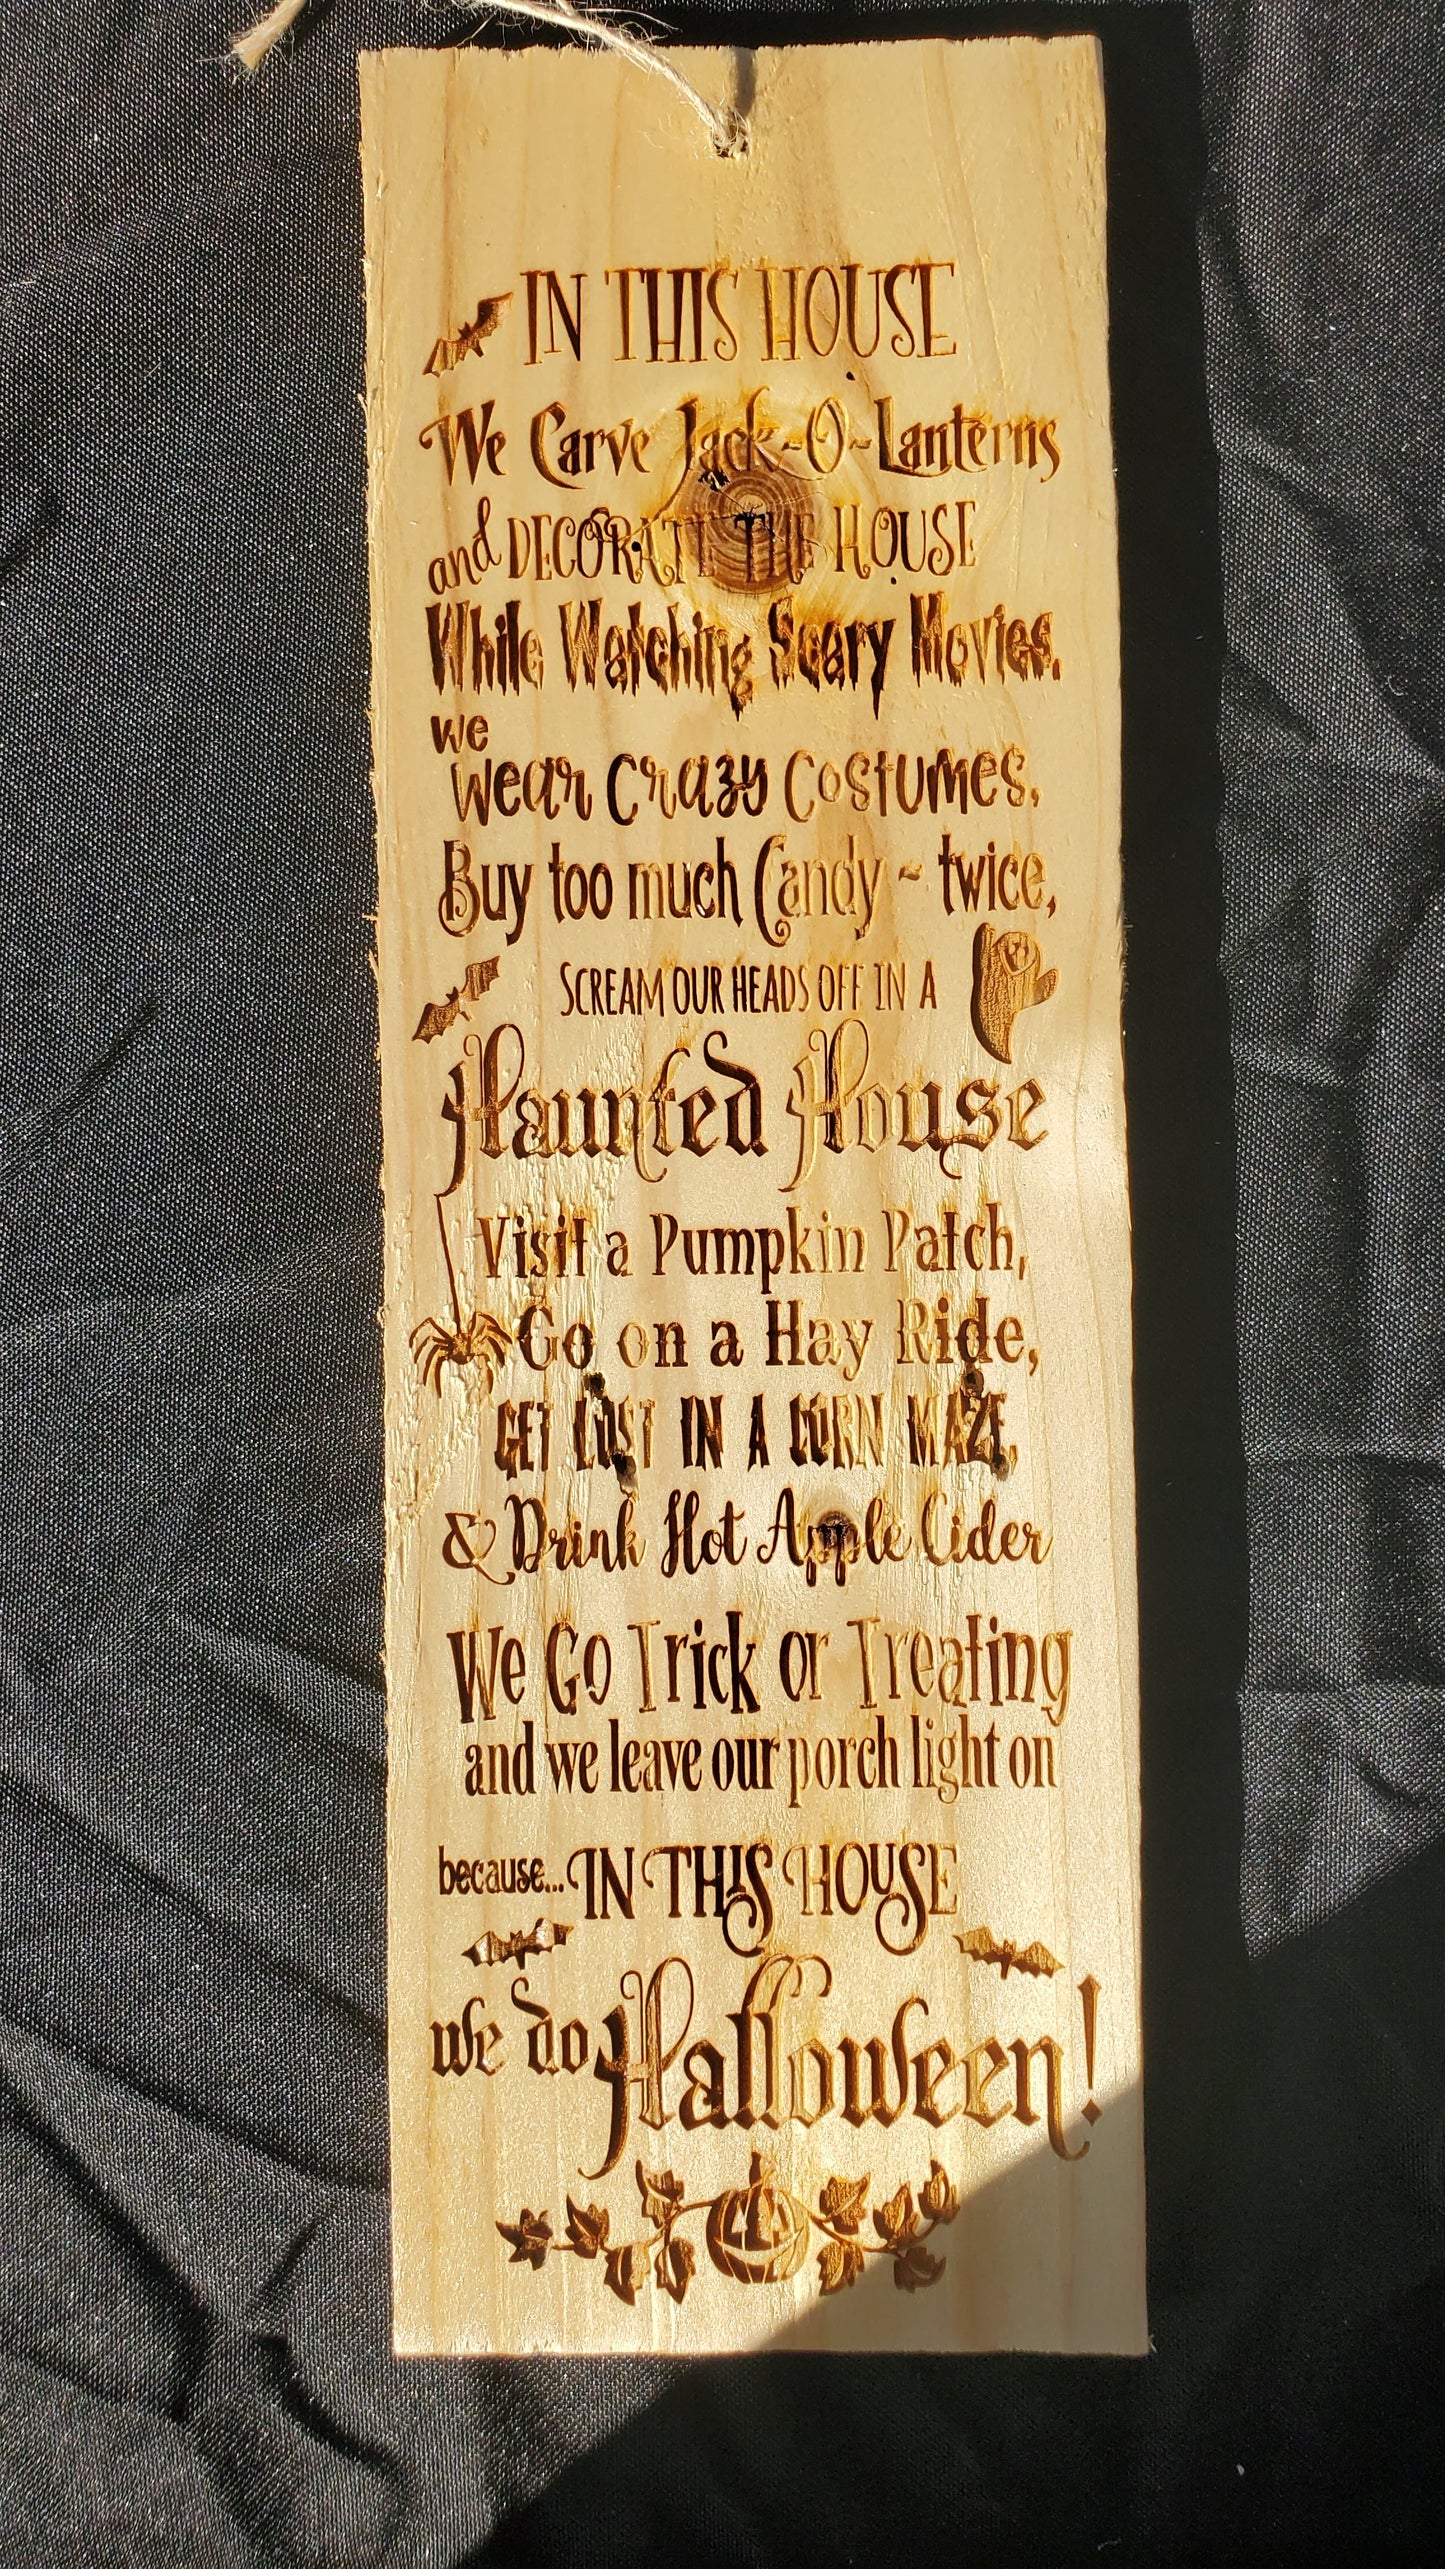 IN THIS HOUSE
We Carve Jack-O-Lanterns
and DECORATE THE HOUSE
While Watching Scary Movies.
we
wear crazy costumes,
Buy too much Candy ~ twice,
SCREAM OUR HEADS OFF IN A
Haunted House
Visit a Pumpkin Patch,
Go on a Hay Ride,
GET LOST IN A CORN MAZE,
& Drink Hot Apple Cider
We Go Trick or Treating
and we leave our porch light on
because... IN THIS HOUSE
we do Halloween!